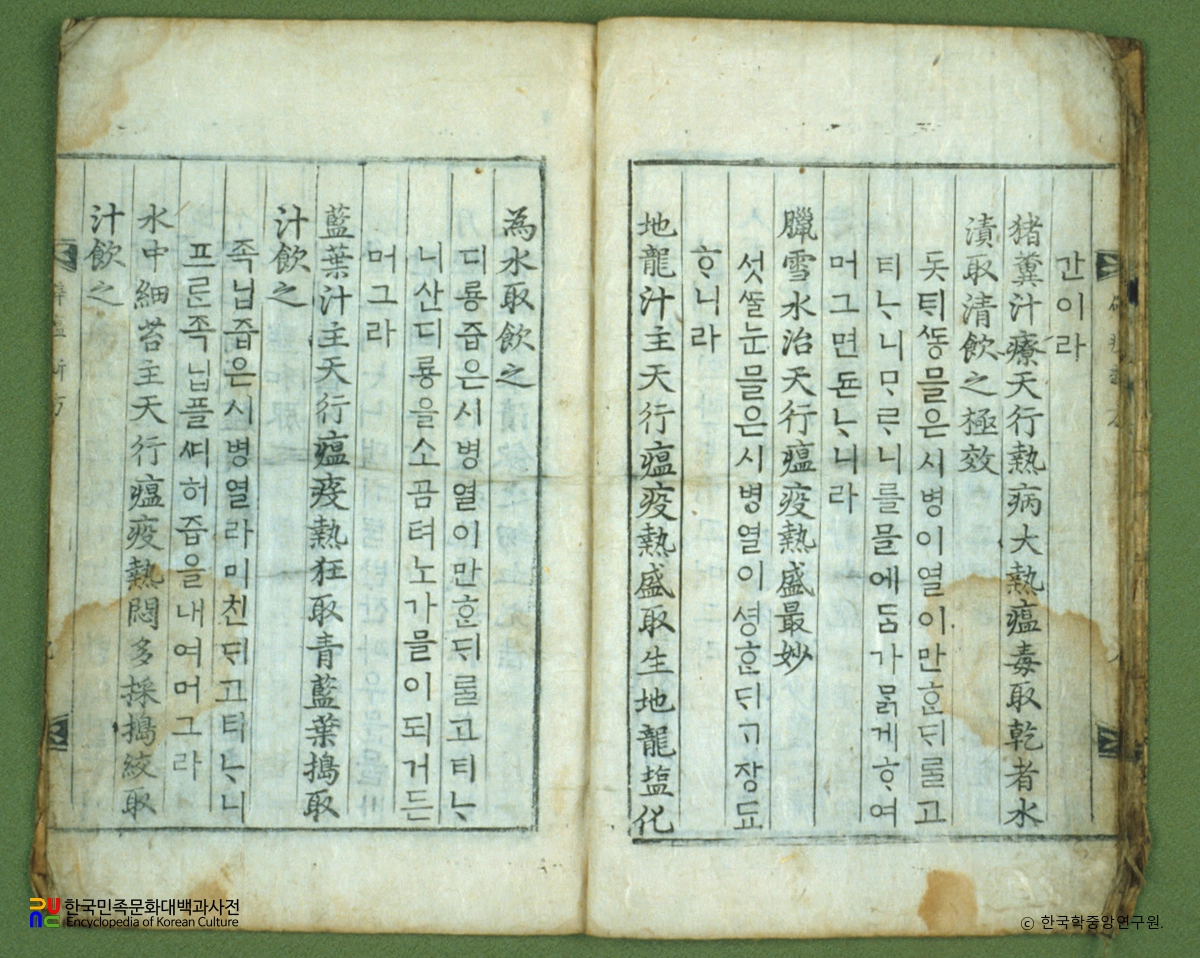 간이라
猪糞汁療天行熱病大熱瘟毒取乾者水
漬取清飲之極效
돗ᄐᆡᄯᅩᆼ믈은시병이열이만ᄒᆞᆫᄃᆡᄅᆞᆯ고
티ᄂᆞ니ᄆᆞᄅᆞ니를믈에ᄃᆞᆷ가ᄆᆞᆰ게ᄒᆞ여
머그면됸ᄂᆞ니라
臘雪水治天行瘟疫熱盛最妙
섯ᄃᆞᆯ눈믈은시병열이셩ᄒᆞᆫᄃᆡ고장됴
ᄒᆞ니라
地龍汁主天行瘟疫熱盛取生地龍塩化
為水取飲之
디룡즙은시병열이만ᄒᆞᆫᄃᆡᄅᆞᆯ고티ᄂᆞ
니산디룡을소곰텨노가믈이되거든
머그라
藍葉汁主天行瘟疫熱狂取青藍葉搗取
汁飲之
족닙즙은시병열라미친ᄃᆡ고티ᄂᆞ니
프른족닙플ᄶᅵ허즙을내여머그라
水中細苔主天行瘟疫熱悶多採搗絞取
汁飲之
한국민족문화대백과사전
Encyclopedia of Korean Culture
© 한국학중앙연구원.